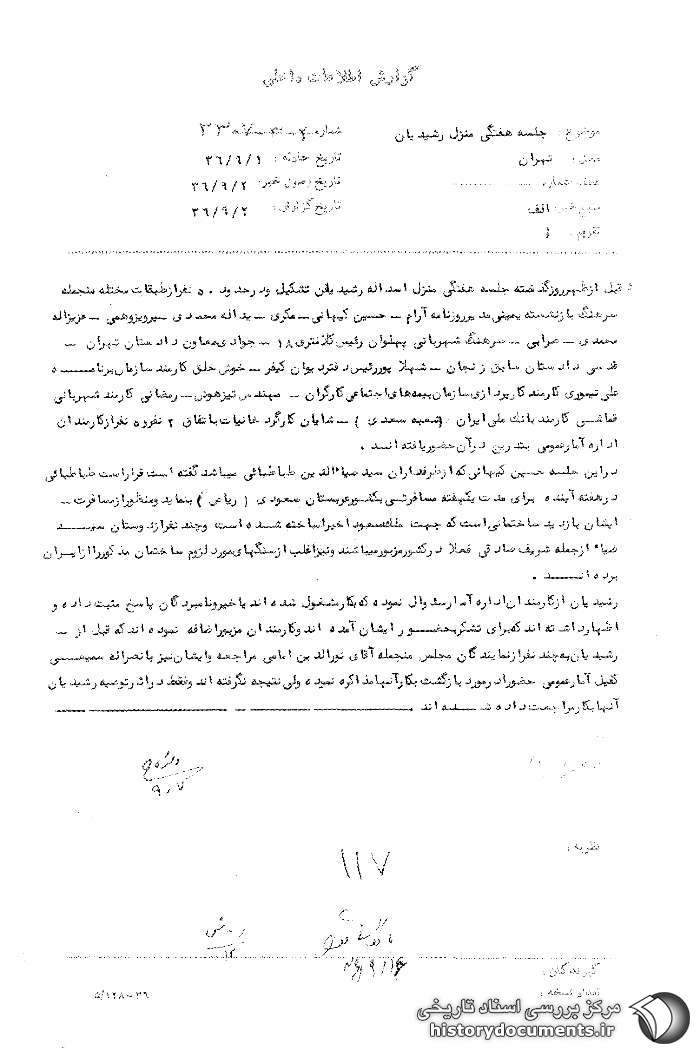 گزارش اطلاعات داخلی
موضوع : جلسه هفتگی منزل رشیدیان
شماره
محل : تهران
تاریخ حادثه : ۳۶/۹/۱
عطف شماره
تاریخ وصول خبر : ۳۶/۹/۲
منبع خبر : الف
تاریخ گزارش : ۳۶/۹/۲
تقویم :
قبل از ظهر روز گذشته جلسه هفتگی منزل اسداله رشیدیان تشکیل و در حدود ۵۰ نفر از طبقات مختلفه منجمله
سرهنگ بازنشسته یمینی مدیر روزنامه آرام – حسین کیهانی – مکری – یداله محمدی – پرویز وهمی – عزیزاله
محمدی – صرابی – سرهنگ شهربانی پهلوان رئیس کلانتری ۱۸ – جوادی معاون دادستان تهران –
قدسی دادستان سابق زنجان – شهلاپور رئیس دفتر دیوان کیفر – خوش خلق کارمند سازمان برنامه
علی تیموری کارمند کاربردازی سازمان بیمه‌های اجتماعی کارگران – مهندس تیزهوش – رمضانی کارمند شهربانی
قماشی کارمند بانک ملی ایران (شعبه سعدی) – شایان کارگر دخانیات باتفاق ۲ نفر و ده نفر از کارمندان
اداره آمار عمومی بتدریج در آن حضور یافته‌اند .
در این جلسه حسین کیهانی که از طرفداران سید ضیاءالدین طباطبائی میباشد گفته است قرار است طباطبائی
در هفته آینده برای مدت یکهفته مسافرتی بکشور عربستان سعودی (ریاض) بنماید و منظور از مسافرت –
ایشان بازدید ساختمانی است که جهت ملک سعود اخیرا ساخته شده است و چند نفر از دوستان سید
ضیاء از جمله شریف صادقی فعلا در کشور مزبور میباشند و نیز اغلب از سنگهای مورد لزوم ساختمان مذکور را از ایران
برده‌اند .
رشیدیان از کارمندان اداره آمار سئوال نموده که بکار مشغول شده‌اند یا خیر و نامبردگان پاسخ مثبت داده و
اظهار داشته‌اند که برای تشکر بحضور ایشان آمده‌اند و کارمندان مزبور اضافه نموده‌اند که قبل از –
رشیدیان به چند نفر از نمایندگان مجلس منجمله آقای نورالدین امامی مراجعه و ایشان نیز با نصراله
کفیل آمار عمومی حضورا در مورد بازگشت بکار آنها مذاکره نموده ولی نتیجه نگرفته‌اند و فقط در اثر توصیه رشیدیان
آنها بکار مراجعت داده شده‌اند
۹/۷
نظریه :
۱۱۷
گیرندگان :
تعداد نسخه :
۵/۱۲۸–۳۶
مرکز بررسی اسناد تاریخی
historydocuments.ir